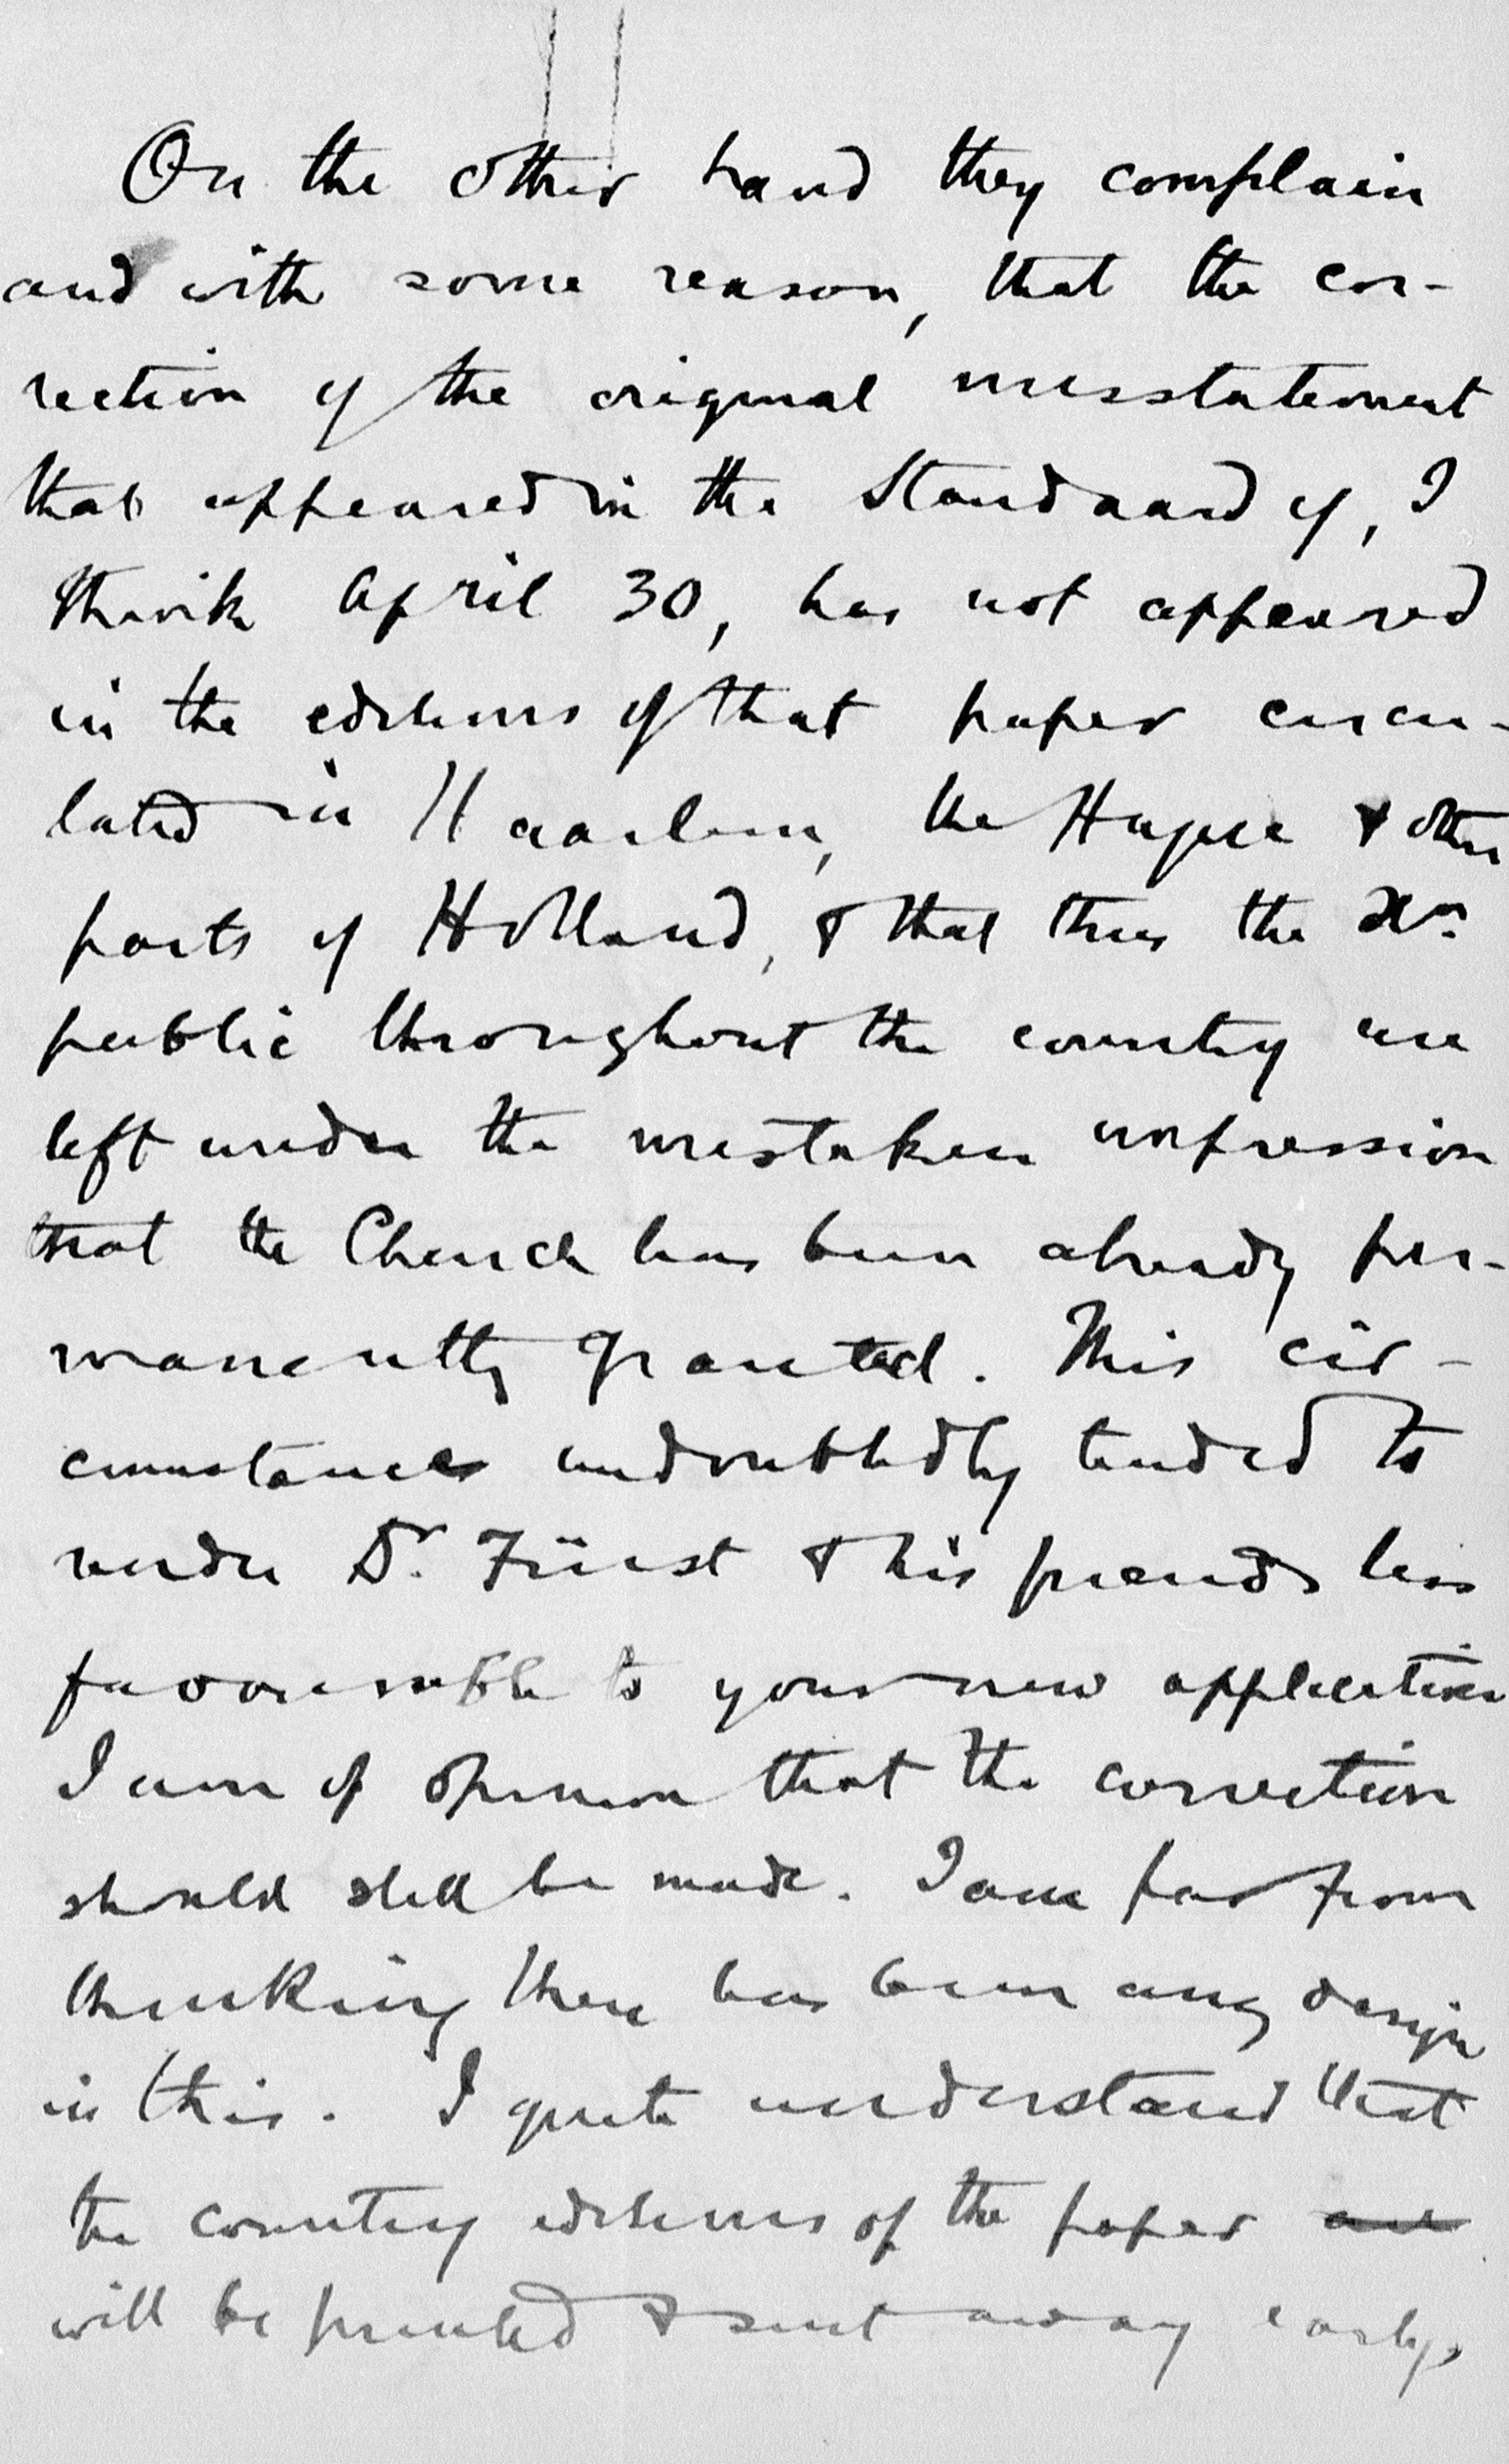 On the other hand they complain
and with some reason, that the cor-
rection of the original misstatement
that appeared in the Standaard of, I
think April 30, has not appeared
in the editions of that paper circu-
lated in Haarlem, the Hague & other
parts of Holland, & that thus the Xn
public throughout the country are
left under the mistaken impression
that the Church has been already per-
manently granted. This cir-
cumstance undoubtedly tended to
render Dr. Fürst & his friends less
favourable to your new application
I am of opinion that the correction
should still be made. I am far from
thinking there has been any design
in this. I quite understand that
the country editions of the paper are
will be printed & sent away early,